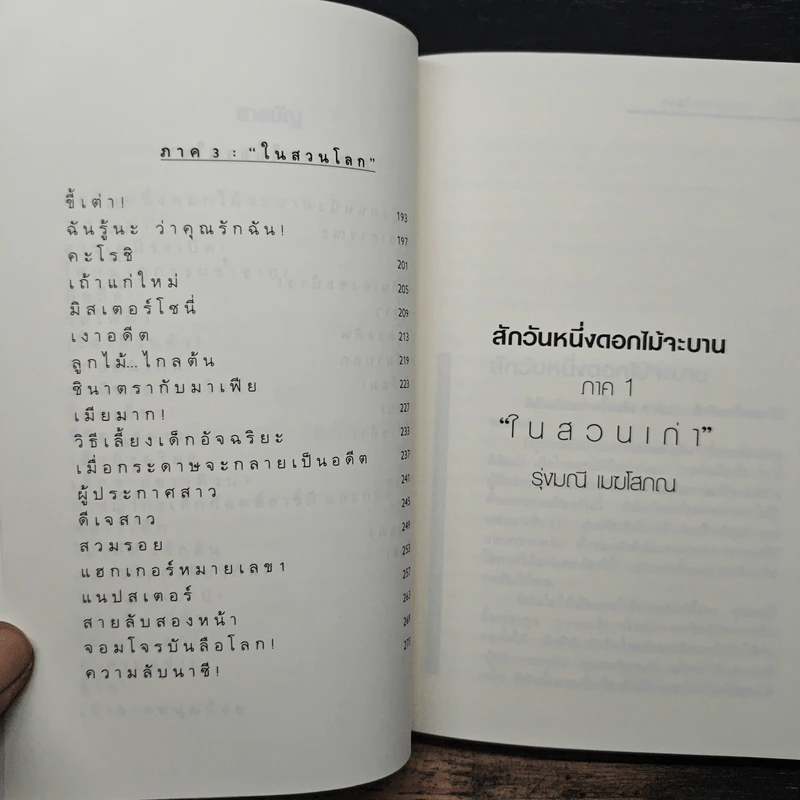 ภาค 3 : "ในสวนโลก"
ขี้เต่า! 193
ฉันรู้นะ ว่าคุณรักฉัน! 197
คะโรชิ 201
เถ้าแก่ใหม่ 205
มิสเตอร์โชนี่ 209
เงาอดีต 213
ลูกไม้...ไกลต้น 219
ซินาตรากับมาเฟีย 223
เมียมาก! 227
วิธีเลี้ยงเด็กอัจฉริยะ 233
เมื่อกระดาษจะกลายเป็นอดีต 237
ผู้ประกาศสาว 241
ดีเจสาว 245
สวมรอย 249
แฮกเกอร์หมายเลข1 253
แนปสเตอร์ 257
สายลับสองหน้า 263
จอมโจรบันลือโลก! 269
ความลับนาซี!
สักวันหนึ่งดอกไม้จะบาน
ภาค 1
"ในสวนเก่า"
รุ่งมณี เมฆโสภณ